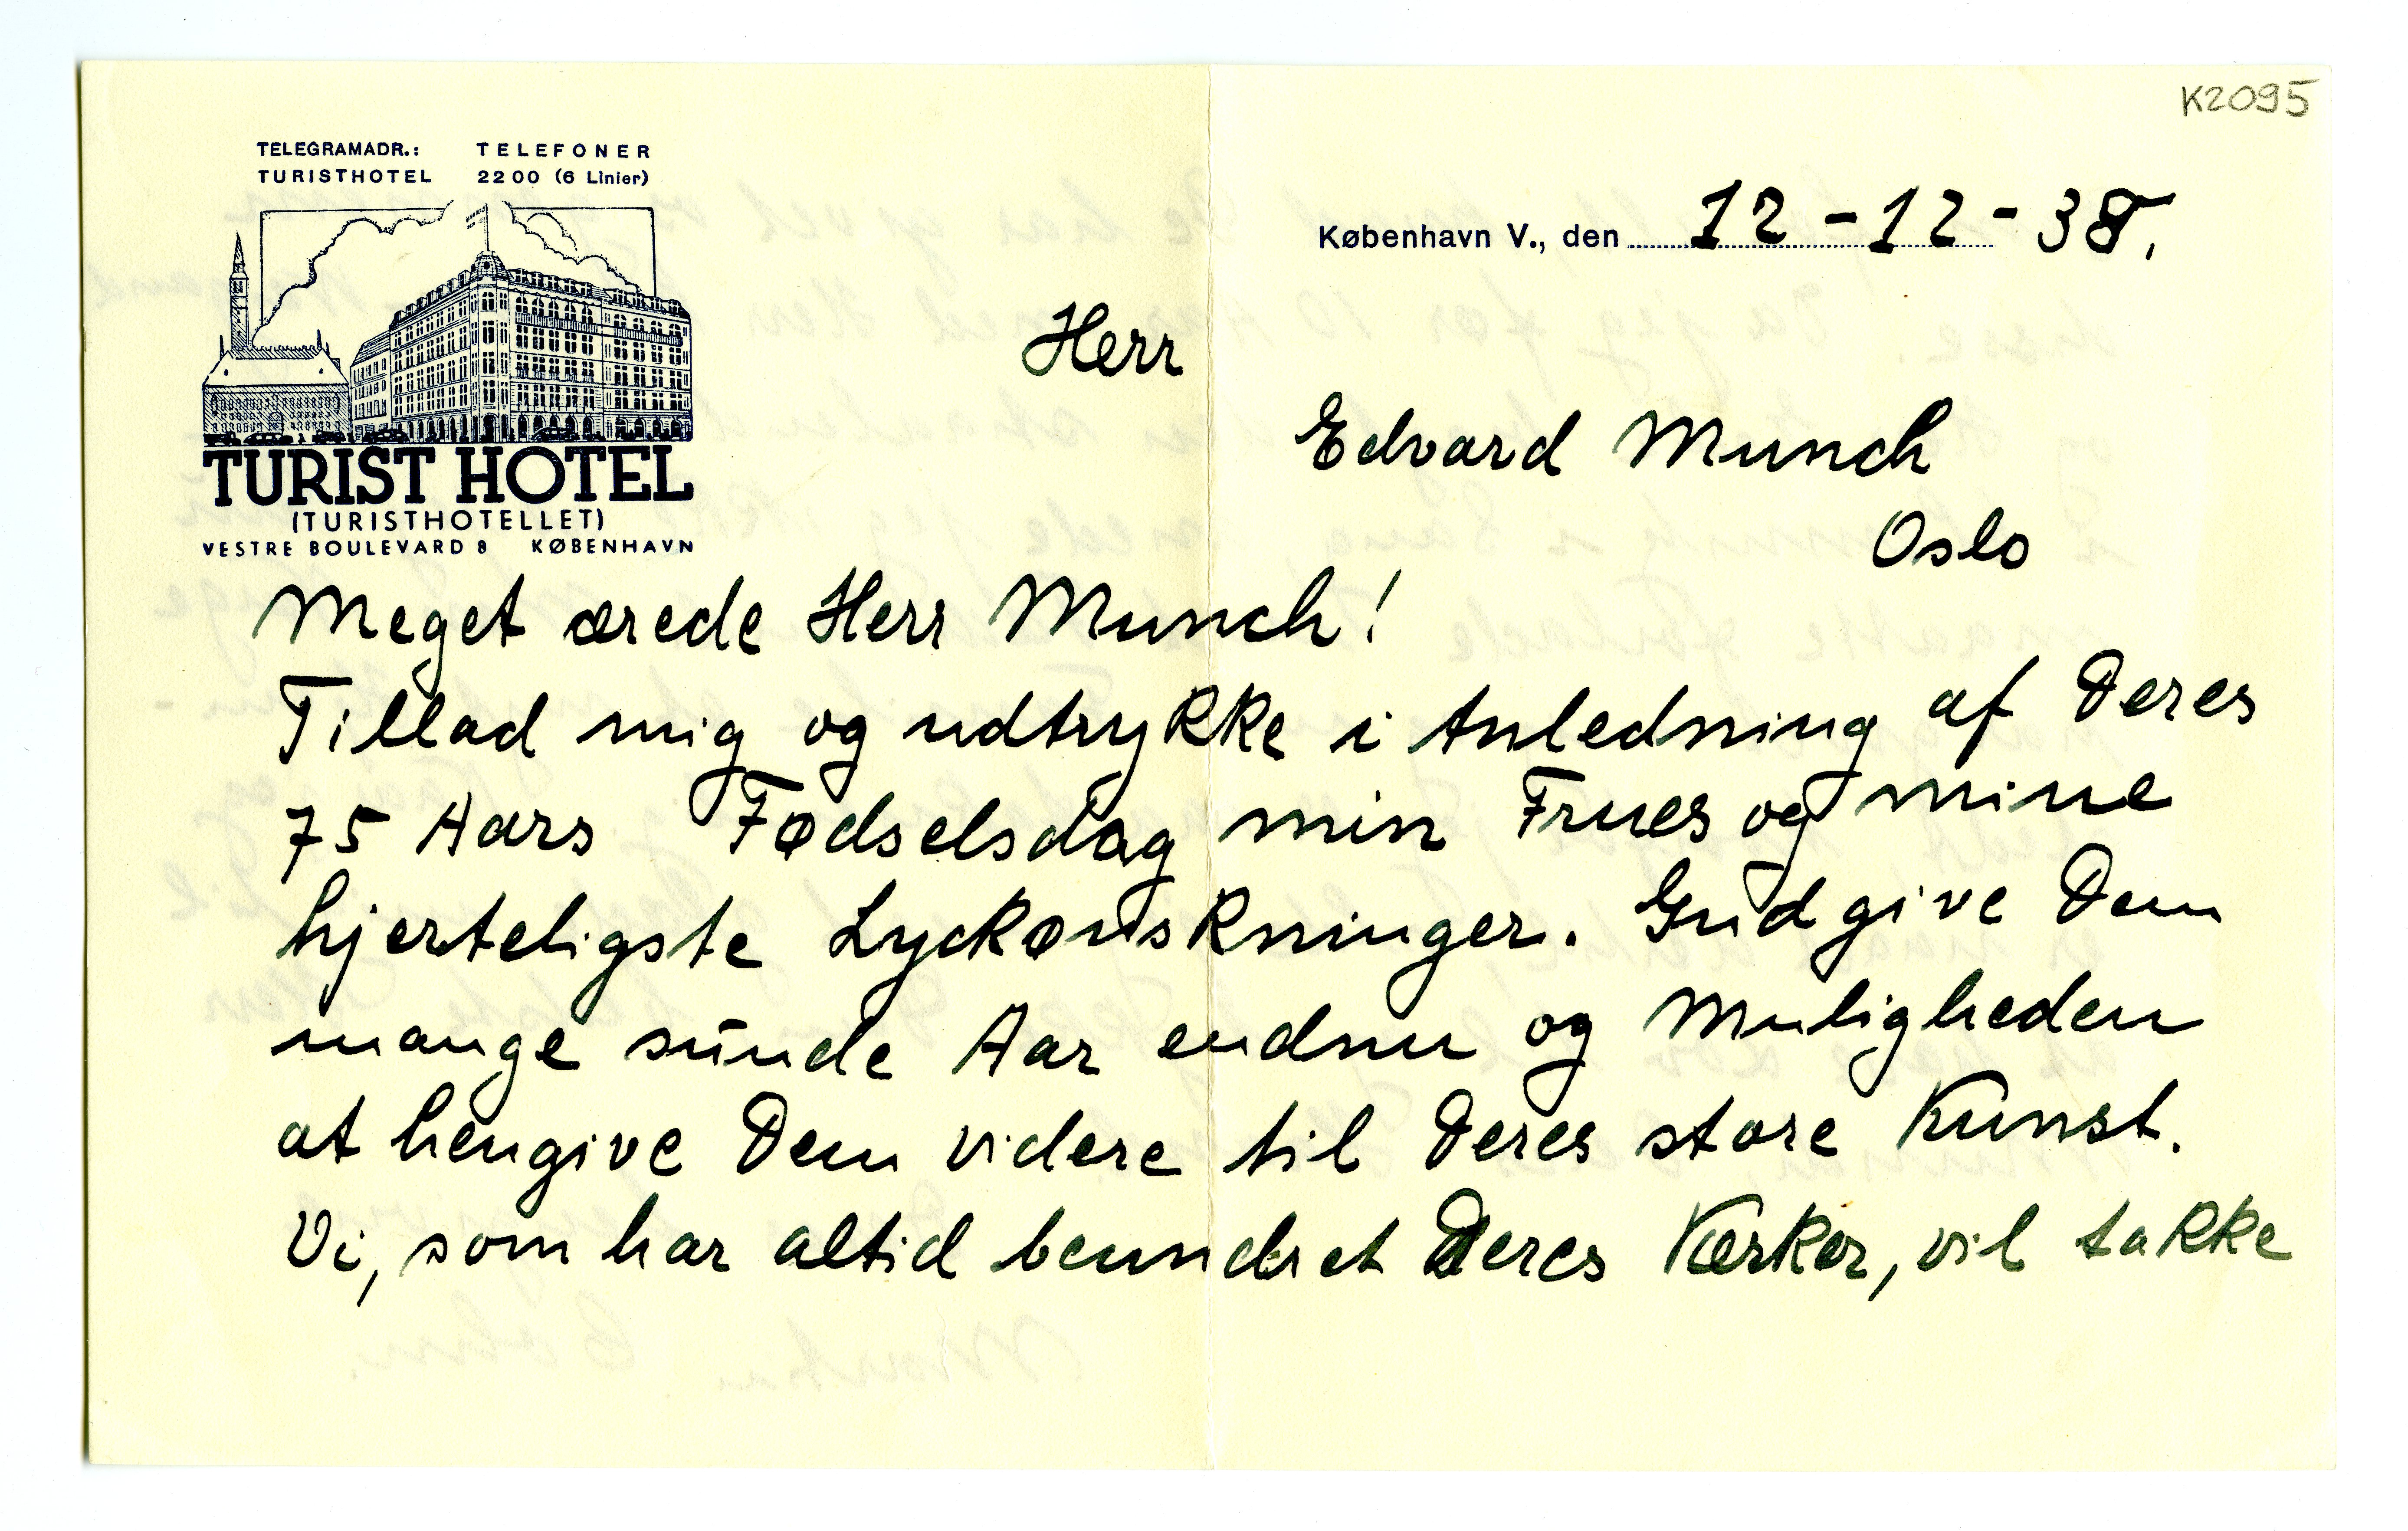 K2095
TELEGRAMADR.: TELEFONER
TURISTHOTEL 2200 (6 Linier)
København V., den 12-12-38.
TURIST HOTEL
(TURISTHOTELLET)
VESTRE BOULEVARD 8 KØBENHAVN
Herr
Edvard Munch
Oslo
Meget ærede Herr Munch!
Tillad mig og udtrykke i Anledning af Deres
75 Aars Fødselsdag min Frues og mine
hjerteligste Lyckønskninger. Gud give Dem
mange sunde Aar endnu og Muligheden
at hengive Dem videre til Deres store Kunst.
Vi, som har altid beundret Deres Værker, vil takke